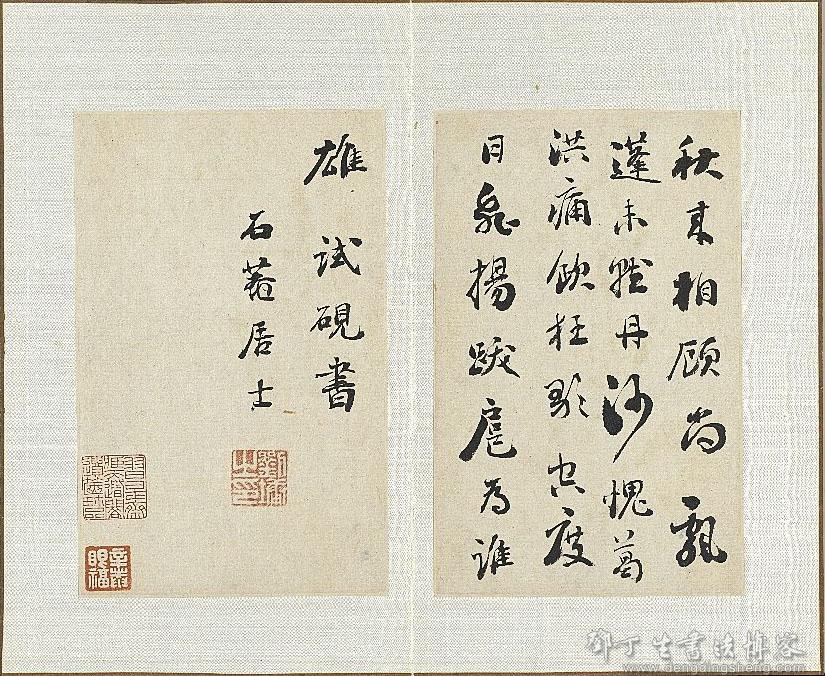 秋来相顾尚飘
蓬未就丹沙愧葛
洪痛飲狂歌空度
日飛揚跋扈为誰
雄 试硯書
石菴居士
劉墉之印
鄧丁生書法博客
www.dengdingsheng.com